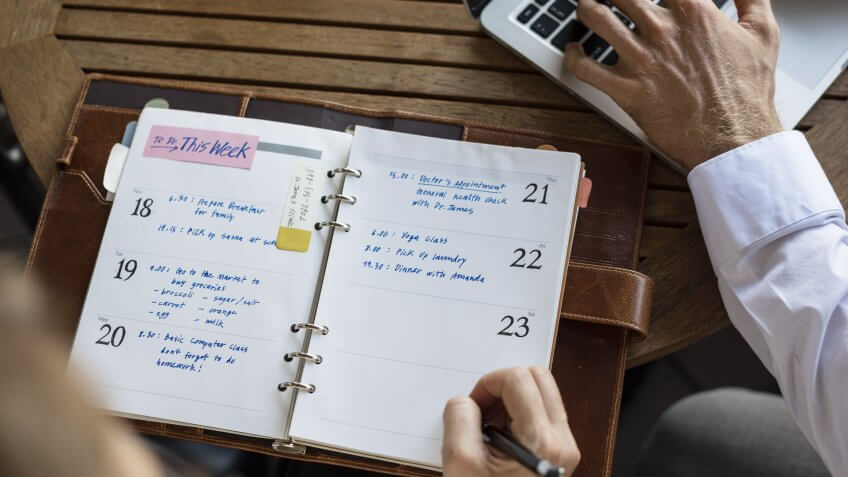 To Do This Week
Mon
18
6.30 : Prepare Breakfast
for family
19.15 : Pick up sanna at
Tue
19
9.00 : Go to the market to
buy groceries
- broccoli - sugar/salt
- carrot - orange
- egg - milk
Wed
20
8.30 : Basic Computer Class
don't forget to do
homework!
Dr. James Clinic
Thu
21
15.00 : Doctor's Appointment
General health check
with Dr. James
Fri
22
6.00 : Yoga class
8.00 : Pick up laundry
19.30 : Dinner with Amanda
Sat
23